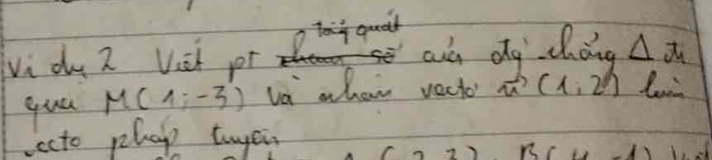 tổng quát
Ví dụ 2 Viết pt tham số của đg thẳng Δ đi
qua M(1;-3) và nhận vectơ n (1;2) làm
vectơ pháp tuyến